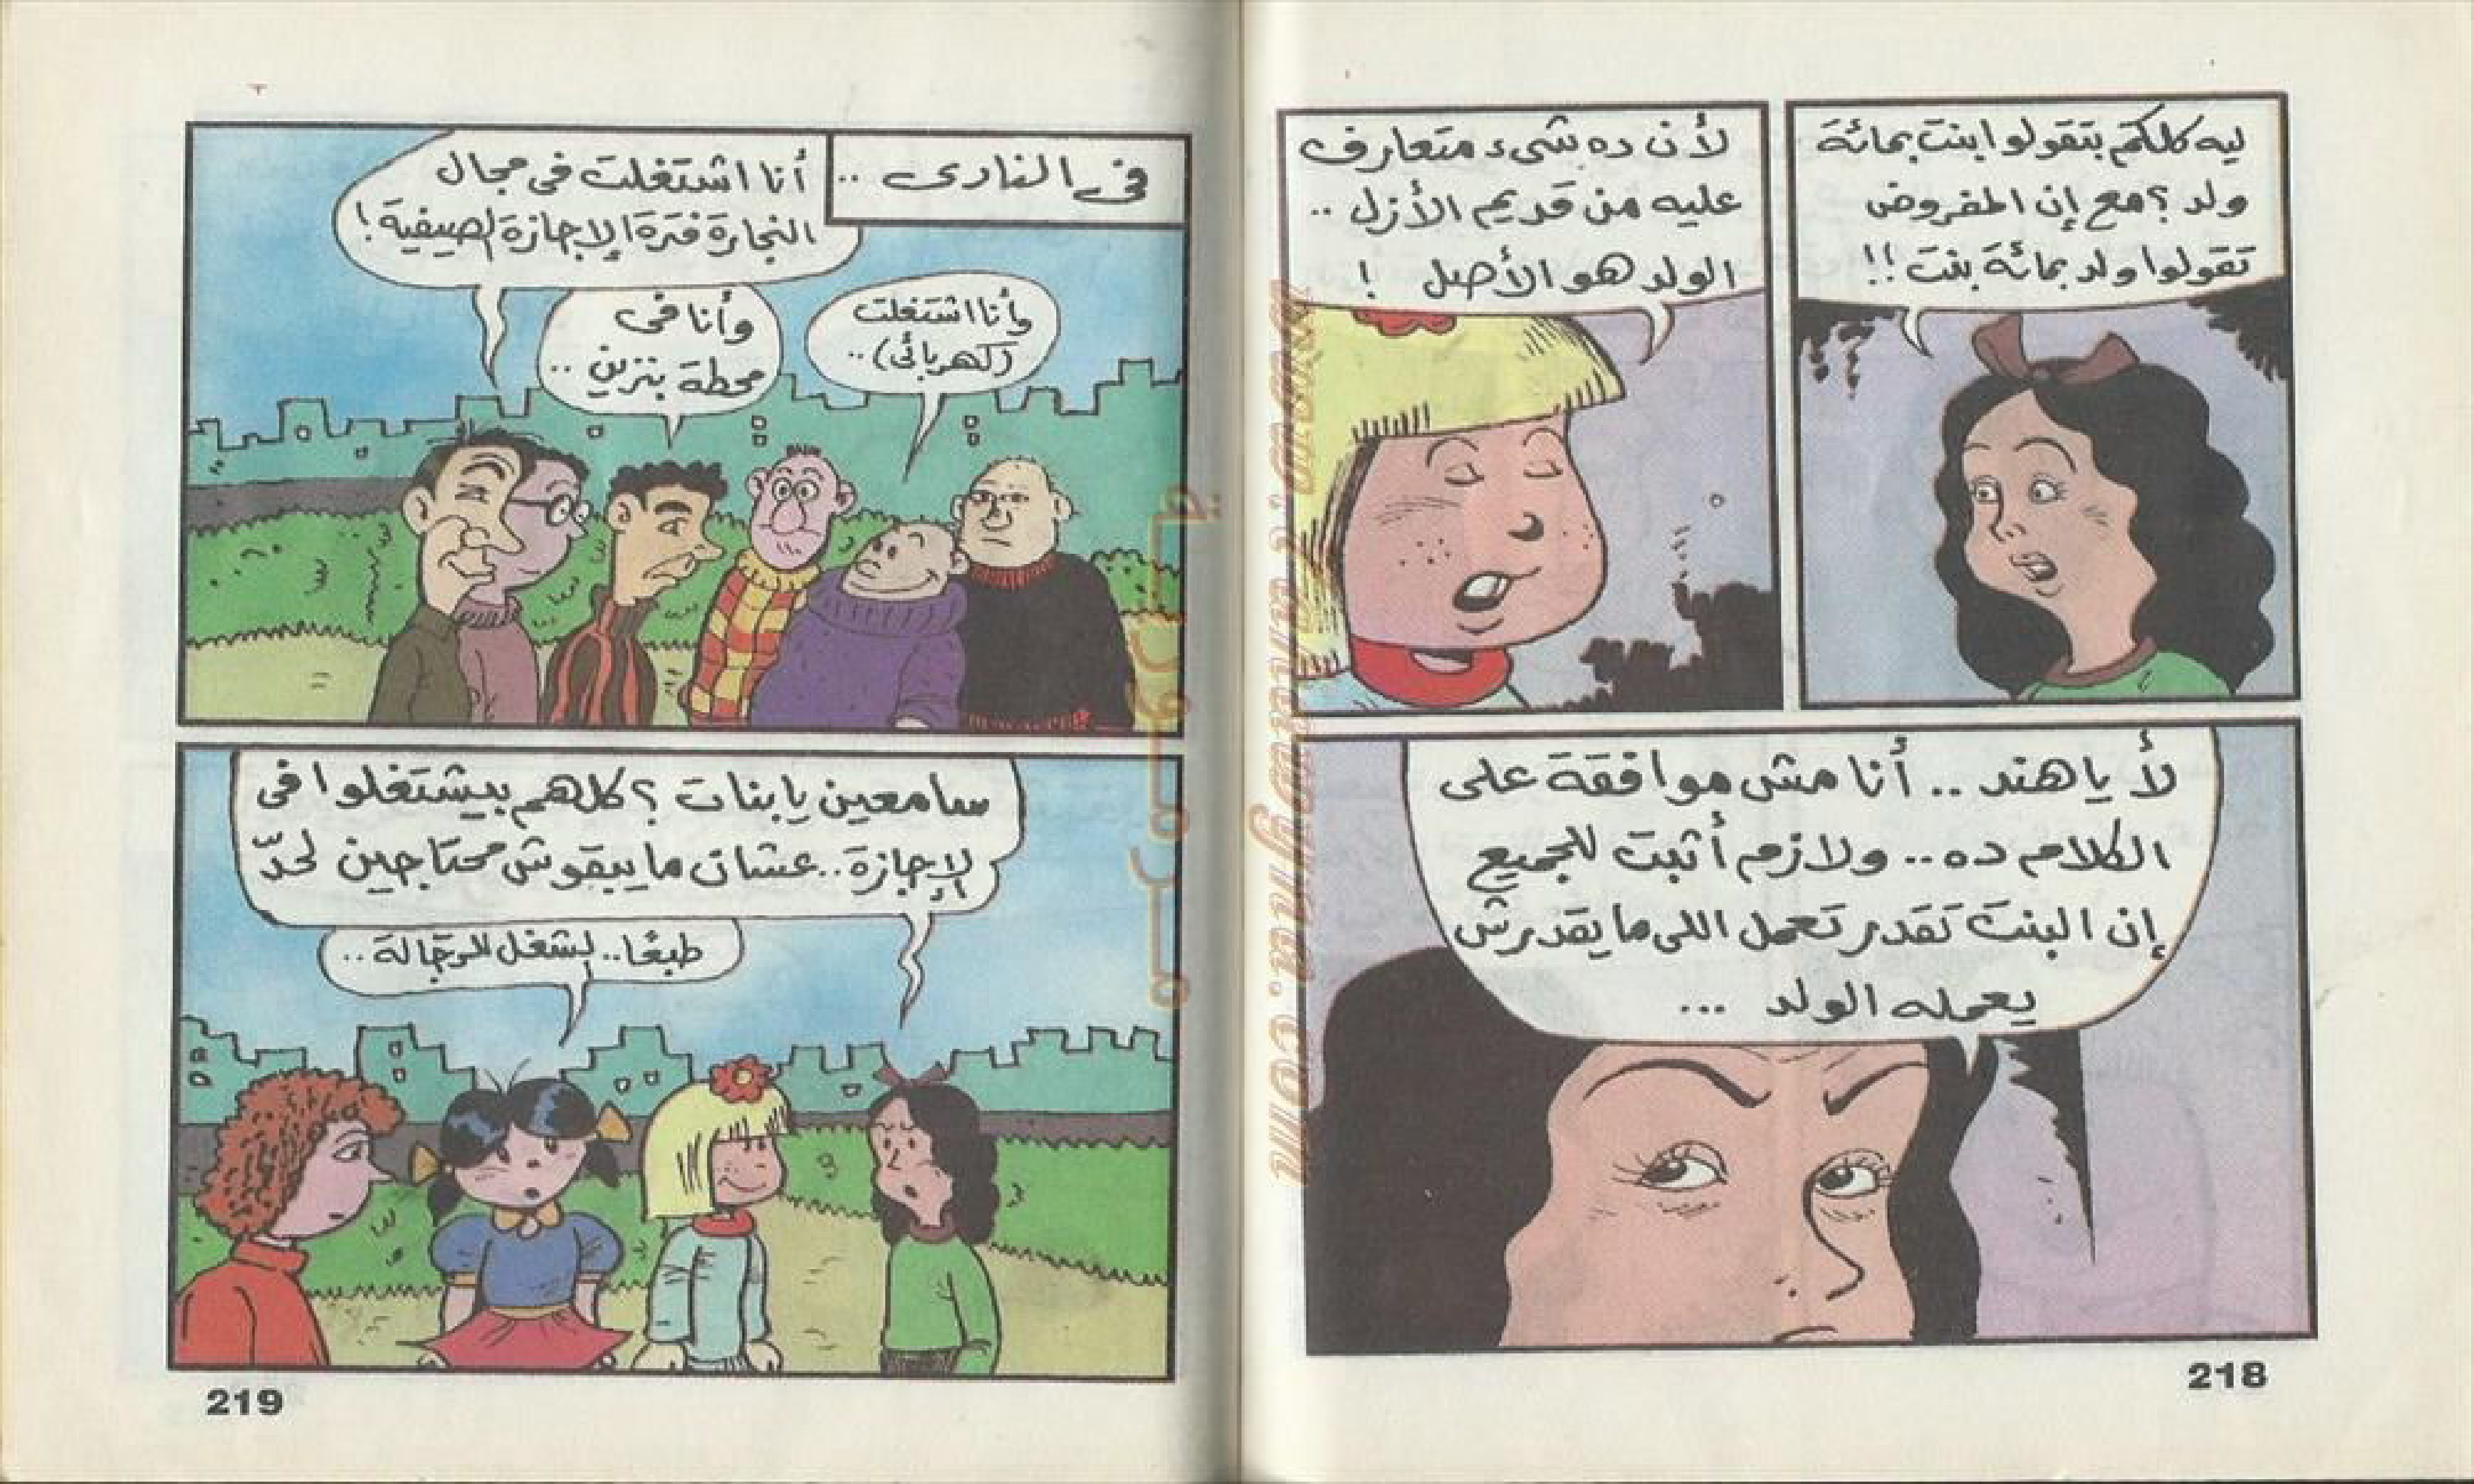 ليه كلكم بتقولوا بنت بمائة
ولد ؟ مع إن المفروض
تقولوا ولد بمائة بنت !!
لأن ده شيء متعارف
عليه من قديم الأزل ..
الولد هو الأصل !
لأ يا هند .. أنا مش موافقة على
الكلام ده .. ولازم أثبت للجميع
إن البنت تقدر تعمل اللى ما يقدرش
يعمله الولد ...
218
فى النادى ..
أنا اشتغلت فى مجال
النجارة فترة الإجازة الصيفية !
وأنا اشتغلت
(كهربائى) ..
وأنا فى
محطة بنزين ..
سامعين يا بنات ؟ كلهم بيشتغلوا فى
الإجازة .. عشان ما يبقوش محتاجين لحدّ
طبعًا .. الشغل للرجّالة ..
219